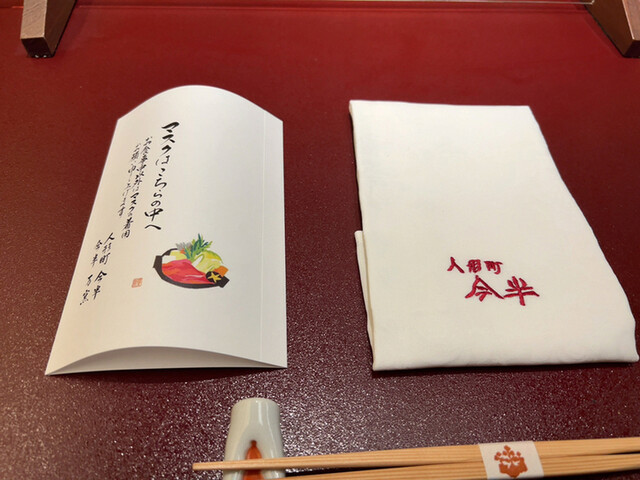 マスクはこちらの中へ
お食事中以外はマスクの着用
お願い申し上げます
人形町 今半
今半 万窯
人形町
今半